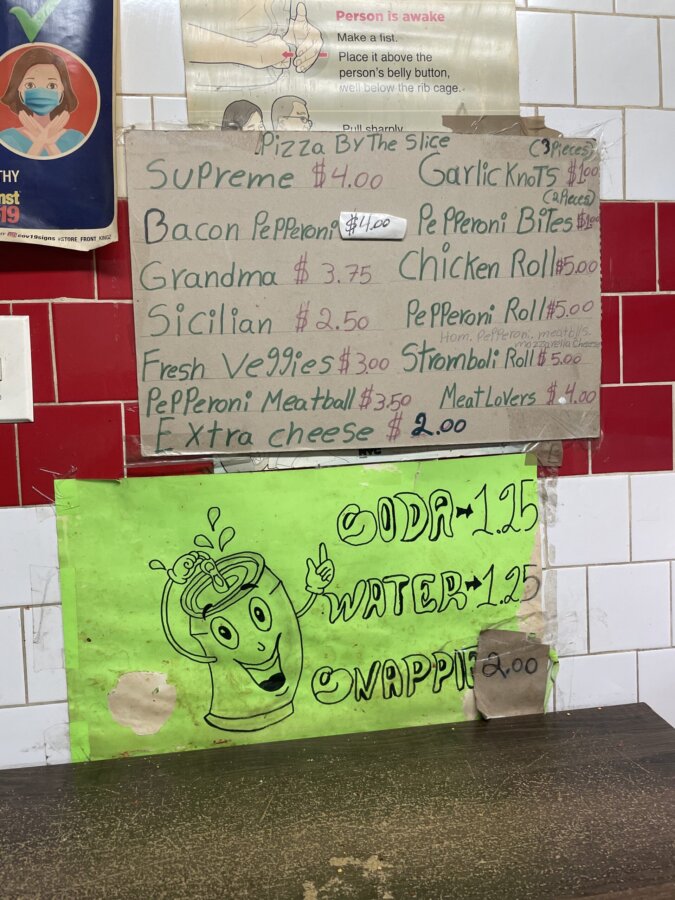 Person is awake
Make a fist.
Place it above the
person's belly button,
well below the rib cage.
Pull sharply
THY
19
#STORE_FRONT_KINGZ
Pizza By The Slice
Supreme $4.00
Bacon Pepperoni $4.00
Grandma $3.75
Sicilian $2.50
Fresh Veggies $3.00
Pepperoni Meatball $3.50
Extra cheese $2.00
(3 Pieces)
Garlic Knots $1.00
(2 Pieces)
Pepperoni Bites $1.00
Chicken Roll $5.00
Pepperoni Roll $5.00
Ham, Pepperoni, meatballs,
mozzarella cheese
Stromboli Roll $5.00
Meat Lovers $4.00
SODA→1.25
WATER→1.25
SNAPPLE 2.00